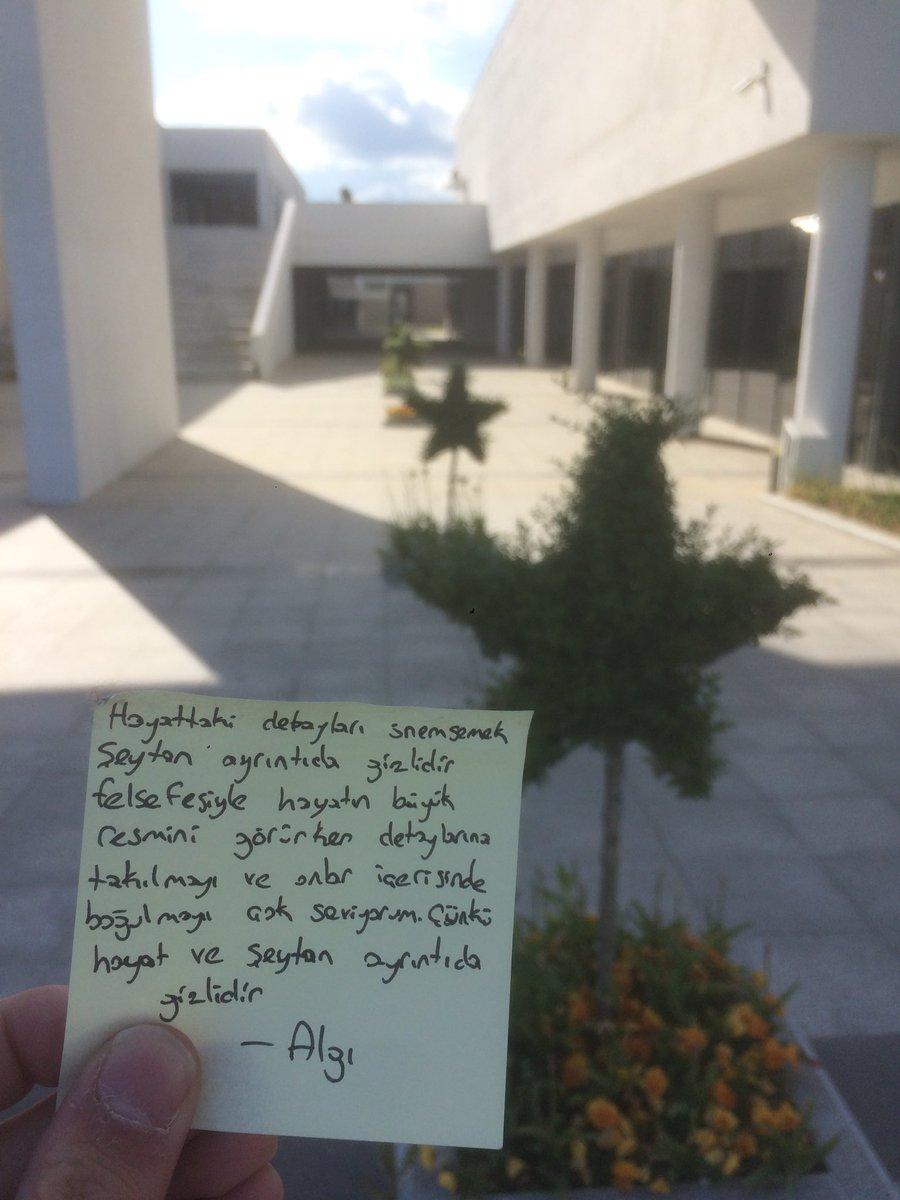 Hayattaki detayları önemsemek
Şeytan ayrıntıda gizlidir
felsefesiyle hayatın büyük
resmini görürken detaylarına
takılmayı ve onlar içerisinde
boğulmayı çok seviyorum. Çünkü
hayat ve Şeytan ayrıntıda
gizlidir
— Algı